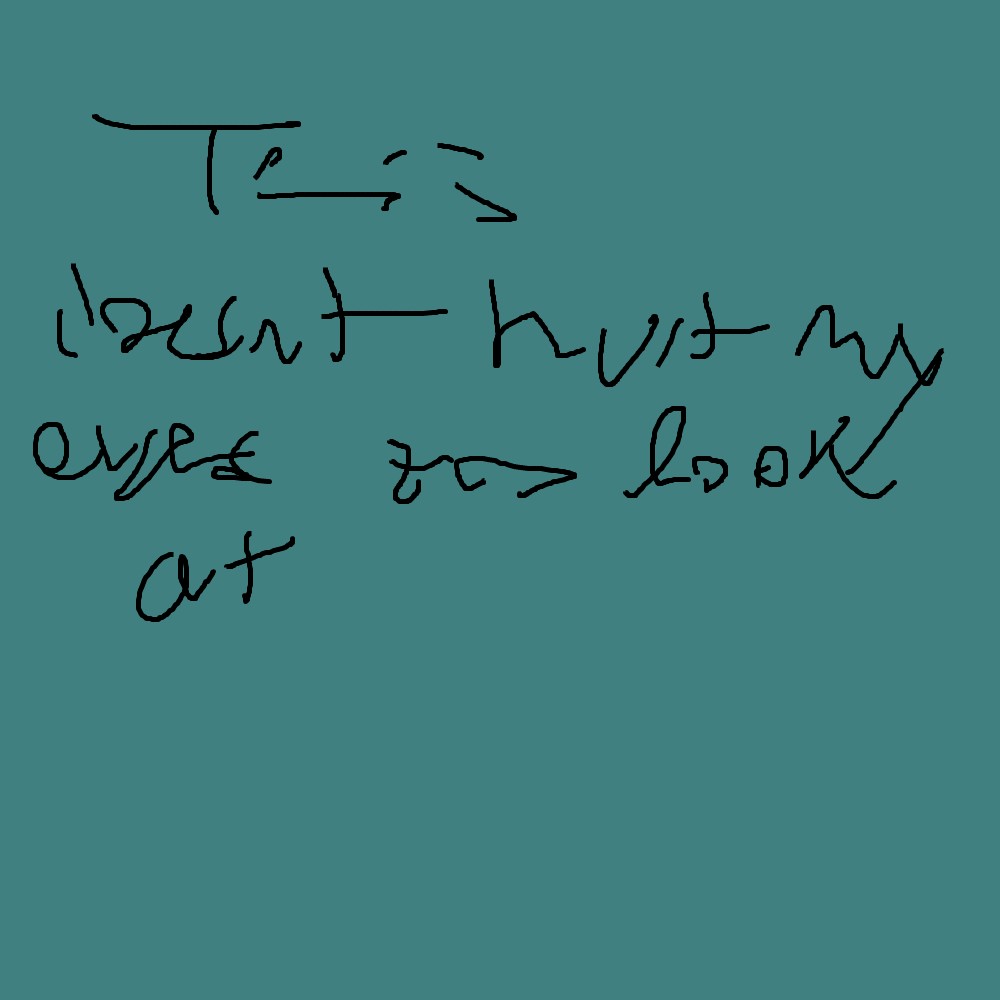 doesn't hurt my
eyes to look
at